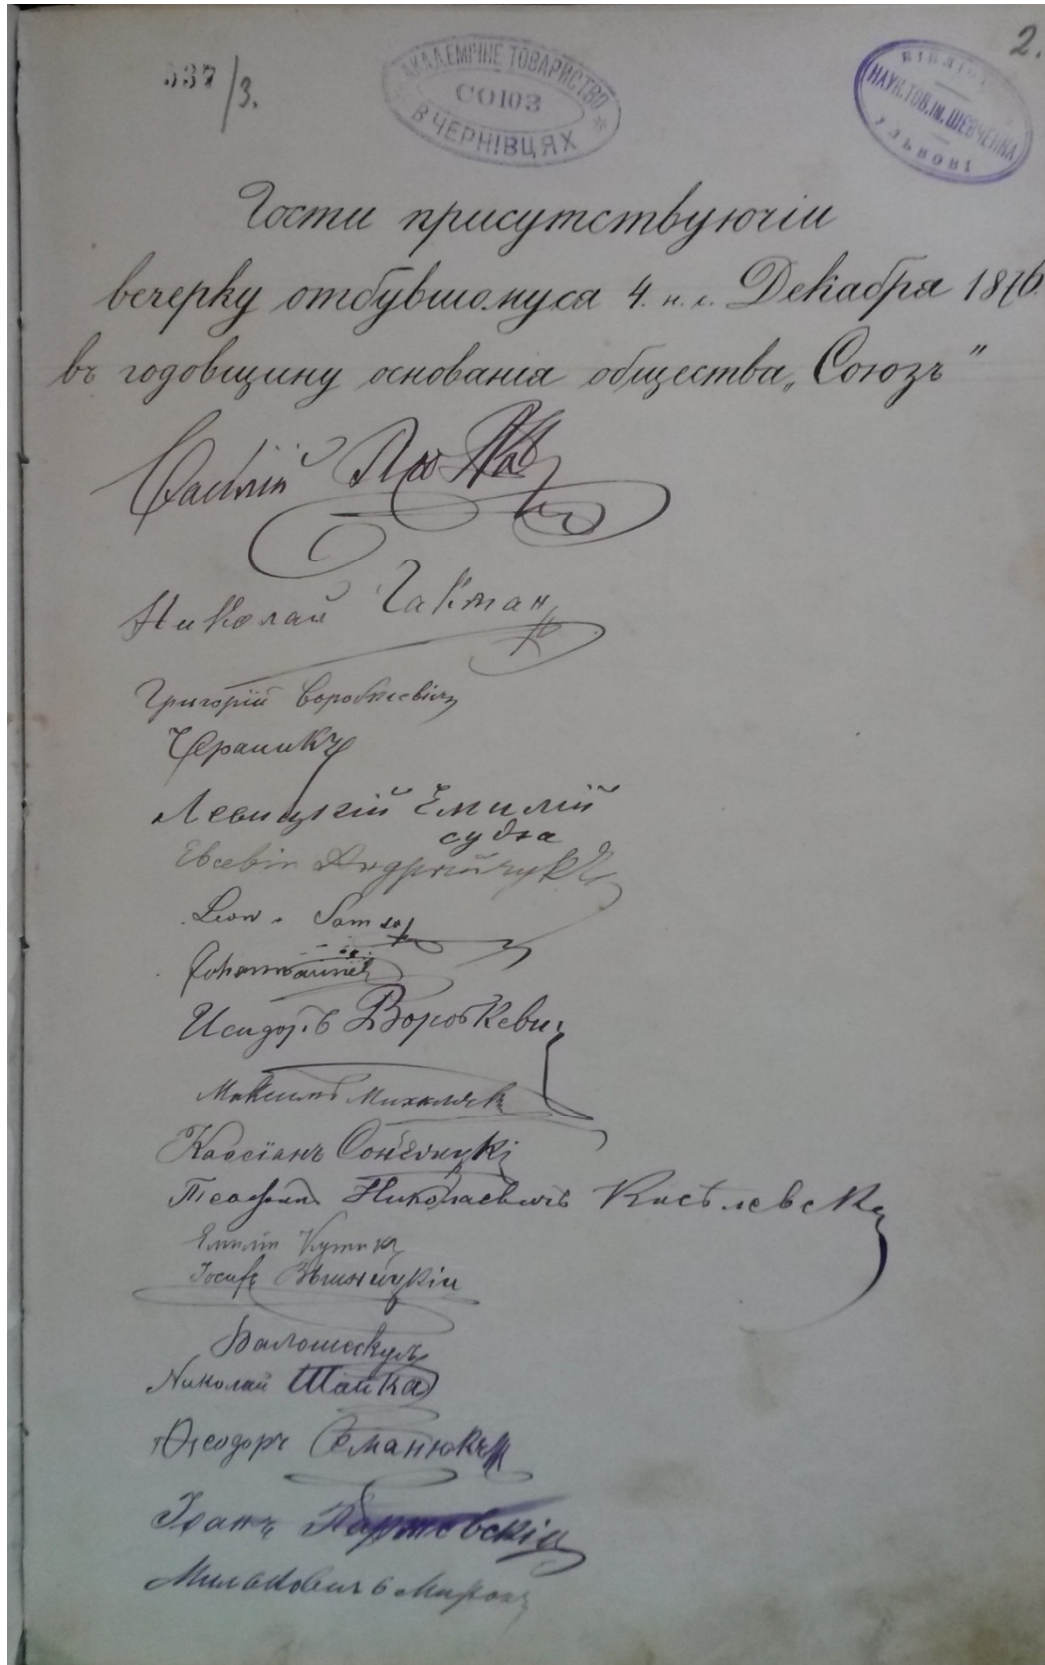 337/3.
АКАДЕМІЧНЕ ТОВАРИСТВО
СОЮЗ
* В ЧЕРНІВЦЯХ *
2.
БІБЛІОТ
НАУК.ТОВ.ім.ШЕВЧЕНКА
У ЛЬВОВІ
Гости присутствуючіи
вечерку отбувшомуся 4. н. с. Декабря 1876.
въ годовщину основанія общества „Союзъ"
Василій
Николай Гакман
Григорій Воробкевичъ
Левицкій Емилій
судія
Евсевій Андрійчукъ
Leon
Исидоръ Воробкевич
Максимъ Михалякъ
Кассіанъ
Теофилъ Николаевичъ Киселевскі
Емилій Кутикъ
Іосифъ Вѣжницкіи
Балошескулъ
Николай Шайка
Ѳеодоръ Семанюкъ
Іоанъ Партовскій
Мильковичъ Миронъ